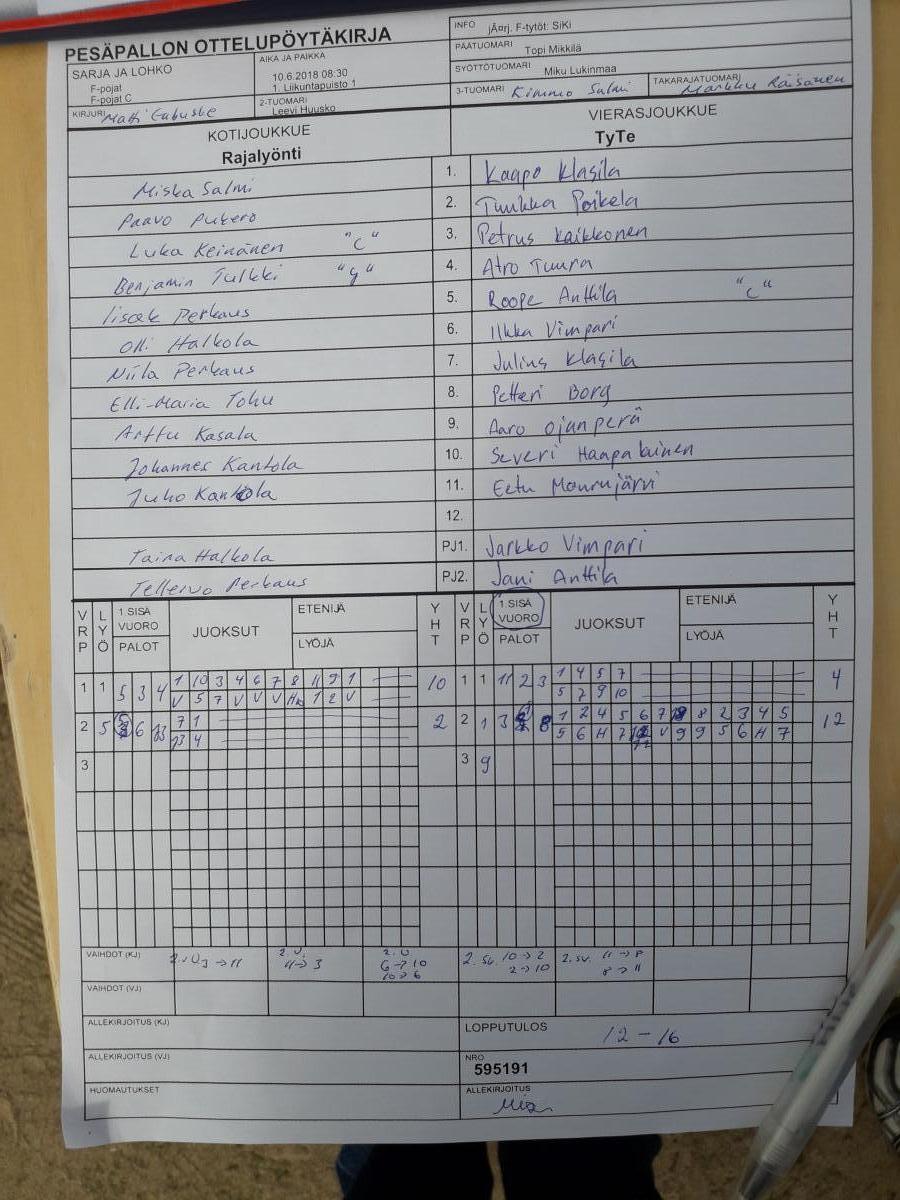 PESÄPALLON OTTELUPÖYTÄKIRJA
INFO jÃ¤rj. F-tytöt: SiKi
PÄÄTUOMARI Topi Mikkilä
SYÖTTÖTUOMARI Miku Lukinmaa
3-TUOMARI Kimmo Salmi TAKARAJATUOMARI Markku Räisänen
SARJA JA LOHKO
F-pojat
F-pojat C
AIKA JA PAIKKA
10.6.2018 08:30
1. Liikuntapuisto 1
KIRJURI Matti
2-TUOMARI
Leevi Huusko
KOTIJOUKKUE
Rajalyönti
VIERASJOUKKUE
TyTe
Miska Salmi 1. Kaapo Klasila
Paavo Pukero 2. Tuukka Poikela
Luka Keinänen "C" 3. Petrus Kaikkonen
Benjamin Tulkki "g" 4. Atro Tuura
Iisak Perkaus 5. Roope Anttila "C"
Olli Halkola 6. Ilkka Vimpari
Niila Perkaus 7. Julius Klasila
Elli-Maria Tohu 8. Petteri Borg
Arttu Kasala 9. Aaro Ojanperä
Johannes Kantola 10. Severi Haapalainen
Juho Kantola 11. Eetu Mourujärvi
12.
Taina Halkola PJ1. Jarkko Vimpari
Tellervo Perkaus PJ2. Jani Anttila
VRP LYÖ 1 SISÄ VUORO PALOT JUOKSUT ETENIJÄ LYÖJÄ YHT VRP LYÖ 1 SISÄ VUORO PALOT JUOKSUT ETENIJÄ LYÖJÄ YHT
1 1 5 3 4 1 10 3 4 6 7 8 11 9 1 10 1 1 11 2 3 1 4 5 7 4
V 5 7 V V V 1 2 V 5 7 9 10
2 5 6 7 1 2 2 1 3 8 1 2 4 5 6 7 8 2 3 4 5 12
4 5 6 H 7 V 9 9 5 6 H 7
3 3 9
VAIHDOT (KJ) 2.V 3→11 2.V. 11→3 2.V 6→10 10→6 2.sv. 10→2 2→10 2.sv. 11→8 8→11
VAIHDOT (VJ)
ALLEKIRJOITUS (KJ) LOPPUTULOS 12-16
ALLEKIRJOITUS (VJ) NRO 595191
HUOMAUTUKSET ALLEKIRJOITUS